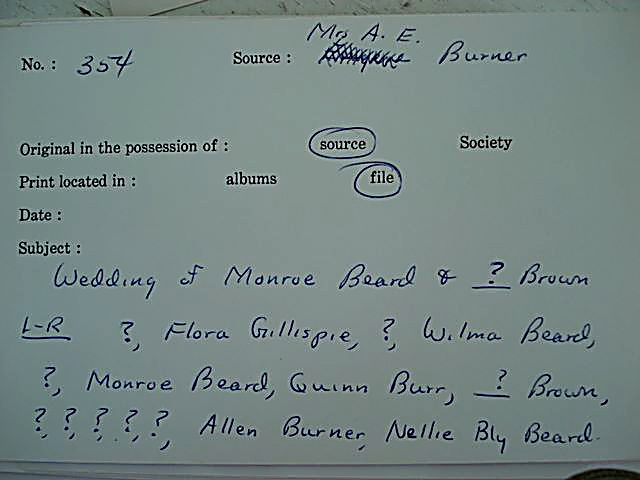 Mrs A. E.
No. : 354 Source : Burner
Original in the possession of : source Society
Print located in : albums file
Date :
Subject :
Wedding of Monroe Beard & ? Brown
L-R ?, Flora Gillispie, ?, Wilma Beard,
?, Monroe Beard, Quinn Burr, ? Brown,
?, ?, ?, ?, ?, Allen Burner, Nellie Bly Beard.